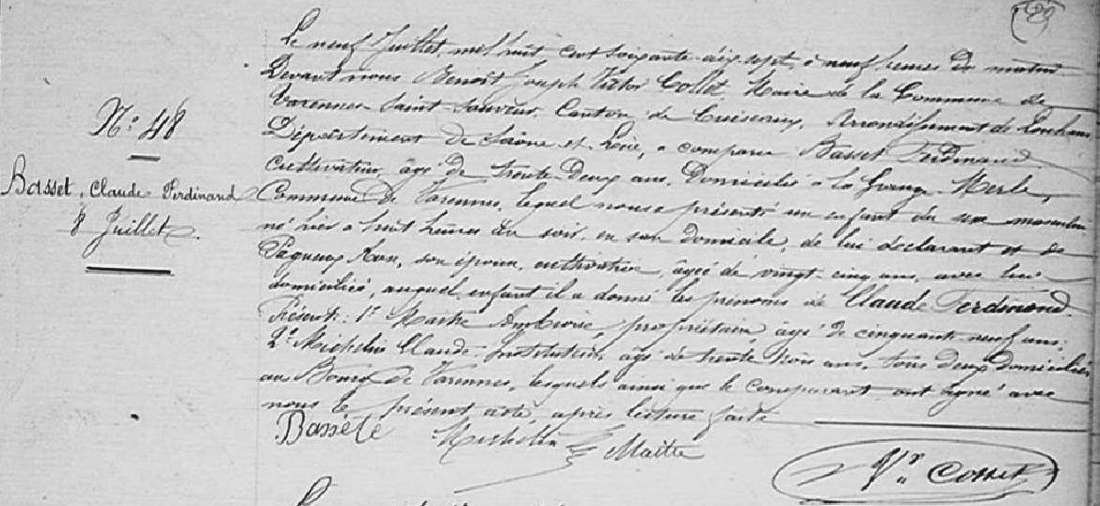 N: 48
Basset, Claude Ferdinand
8 Juillet.
Le neuf Juillet, mil huit cent soixante dix sept, à neuf heures du matin
Devant nous Benoit Joseph Victor Collet Maire de la Commune de
Varennes Saint Sauveur, Canton de Cuiseaux, Arrondissement de Louhans
Département de Saône et Loire, a comparu Basset Ferdinand
cultivateur, âgé de trente deux ans, Domicilié à la Grange Merle,
Commune de Varennes, lequel nous a présenté un enfant du sexe masculin
né hier à huit heures du soir, en son domicile, de lui déclarant et de
son épouse, cultivatrice, âgée de vingt cinq ans, avec lui
domiciliée, auquel enfant il a donné les prénoms de Claude Ferdinand.
Présents: 1° Maitre Ambroise propriétaire, âgé de cinquante neuf ans;
2° Michelin Claude Instituteur, âgé de trente trois ans, tous deux domiciliés
au Bourg de Varennes, lesquels ainsi que le comparant ont signé avec
nous le présent acte après lecture faite
Michelin Maitre
Vr